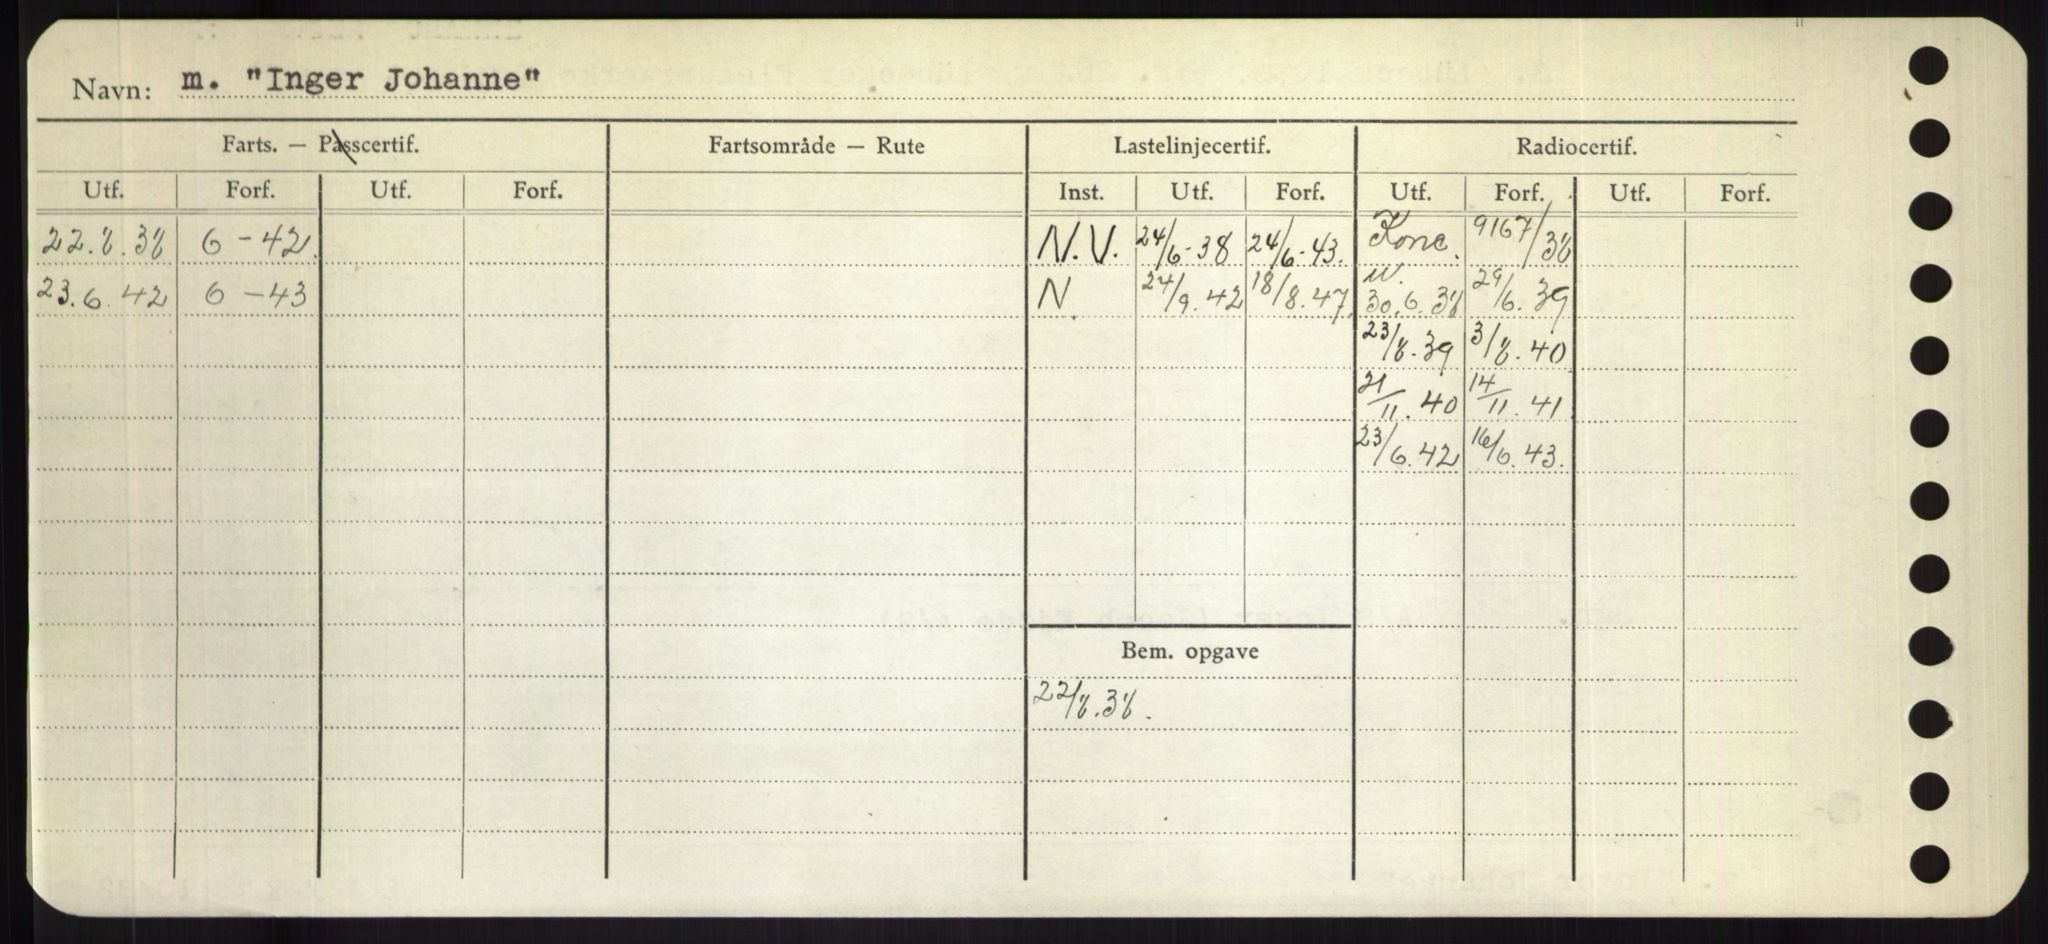 Navn: m. "Inger Johanne"
Farts. — Passcertif. Fartsområde — Rute Lastelinjecertif. Radiocertif.
Utf. Forf. Utf. Forf. Inst. Utf. Forf. Utf. Forf. Utf. Forf.
22.8.38 6-42. N.V. 24/6-38 24/6-43. Konc. 9167/38
23.6.42 6-43 N. 24/9.42 18/8.47. 30.6.38 29/6.39
23/8.39 3/8.40
21/11.40 14/11.41
23/6.42 16/6.43.
Bem. opgave
22/8.38.